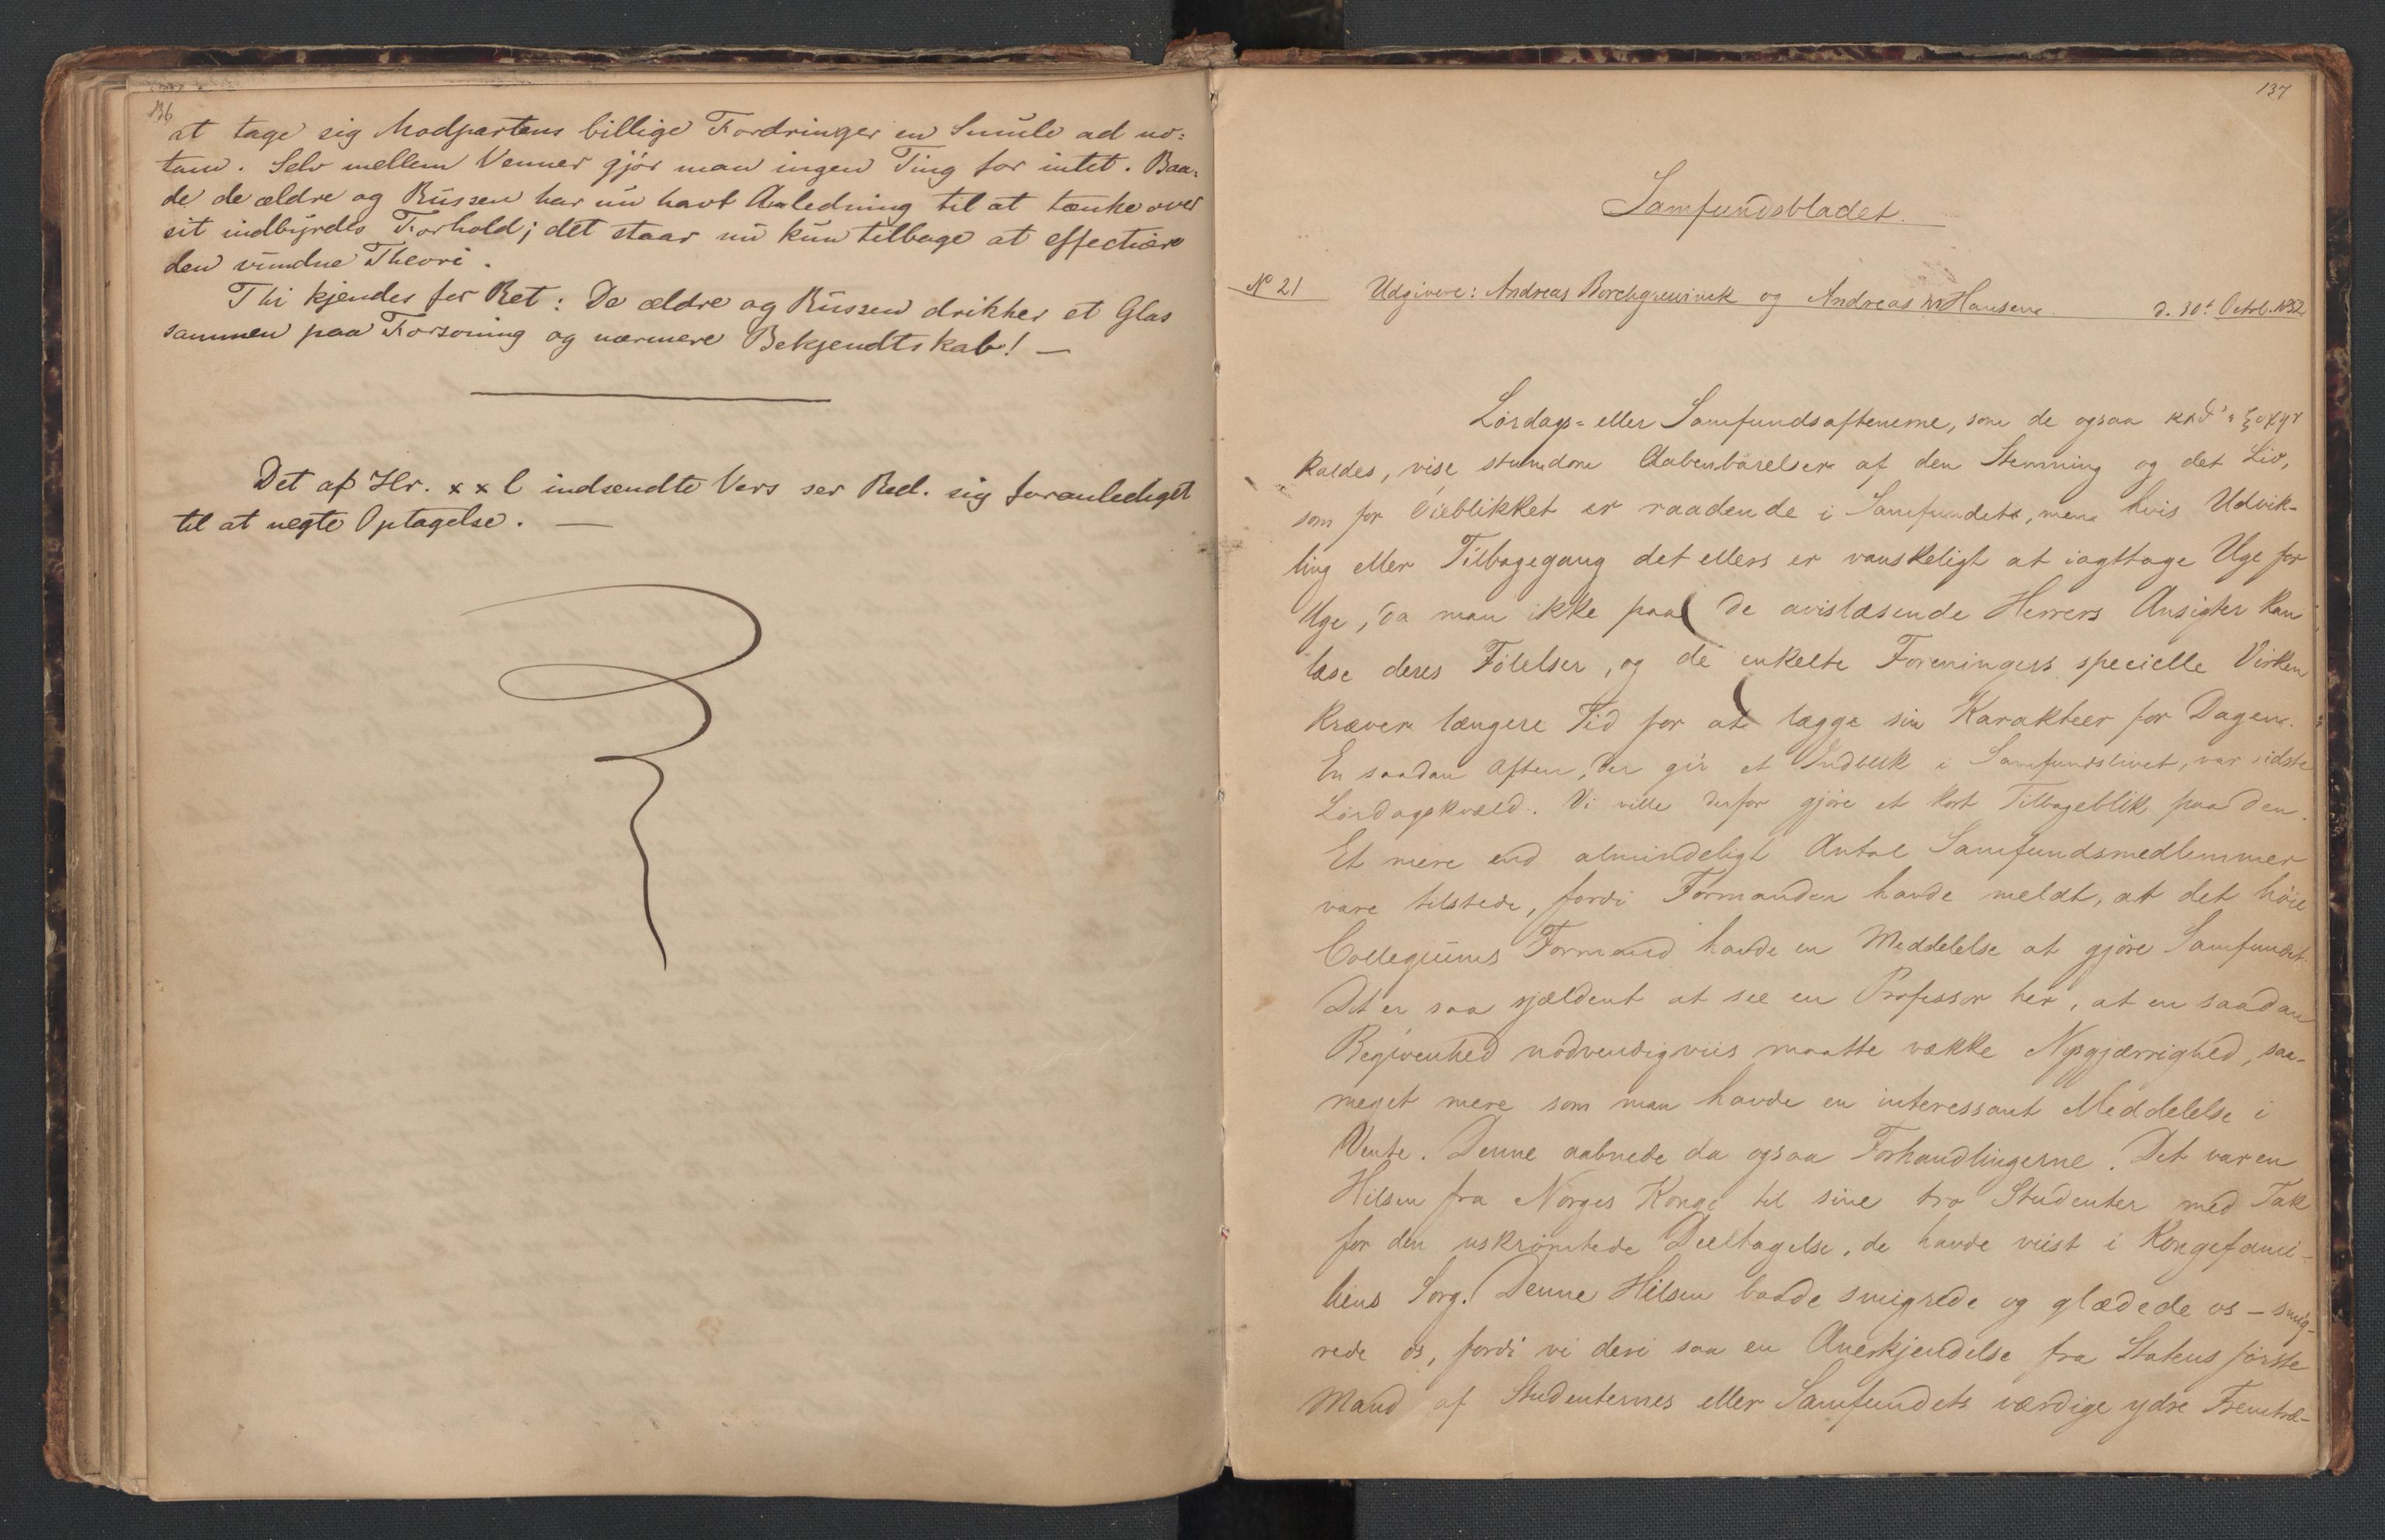 136
at tage sig Modpartens billige Fordringer en Smule ad no=
tam. Selv mellem Venner gjør man ingen Ting for intet. Baa=
de de ældre og Russen har nu havt Anledning til at tænke over
sit indbyrdes Forhold; det staar nu kun tilbage at effectuere
den vundne Theori.
Thi kjendes for Ret: De ældre og Russen drikker et Glas
sammen paa Forsoning og nærmere Bekjendtskab! —
Det af Hr. x x l indsendte Vers ser Red. sig foranlediget
til at negte Optagelse. —
137
Samfundsbladet.
No 21 Udgivere: Andreas Borchgrewinck og Andreas M Hansen. d. 30t Octob. 1852
Lørdags= eller Samfundsaftenerne, som de ogsaa
kaldes, vise stundom Aabenbarelser af den Stemning og det Liv,
som for Øieblikket er raadende i Samfundet, men hvis Udvik-
ling eller Tilbagegang det ellers er vanskeligt at iagttage Uge for
Uge, da man ikke paa de avislæsende Herrers Ansigter kan
læse deres Følelser, og de enkelte Foreningers specielle Virken
kræver længere Tid for at lægge sin Karakteer for Dagen.
En saadan Aften, der gir et Indblik i Samfundslivet, var sidste
Lørdagskvæld. Vi ville derfor gjøre et kort Tilbageblik paa den.
Et mere end almindeligt Antal Samfundsmedlemmer
vare tilstede, fordi Formanden havde meldt, at det høie
Collegiums Formand havde en Meddelelse at gjøre Samfundet.
Det er saa sjældent at see en Professor her, at en saadan
Begivenhed nødvendigviis maatte vække Nysgjærrighed, saa-
meget mere som man havde en interessant Meddelelse i
Vente. Denne aabnede da ogsaa Forhandlingerne. Det var en
Hilsen fra Norges Konge til sine tro Studenter med Tak
for den uskrømtede Deeltagelse, de havde viist i Kongefami-
liens Sorg. Denne Hilsen baade smigrede og glædede os — smig-
rede os, fordi vi deri saa en Anerkjendelse fra Statens første
Mand af Studenternes eller Samfundets værdige ydre Fremtræ-